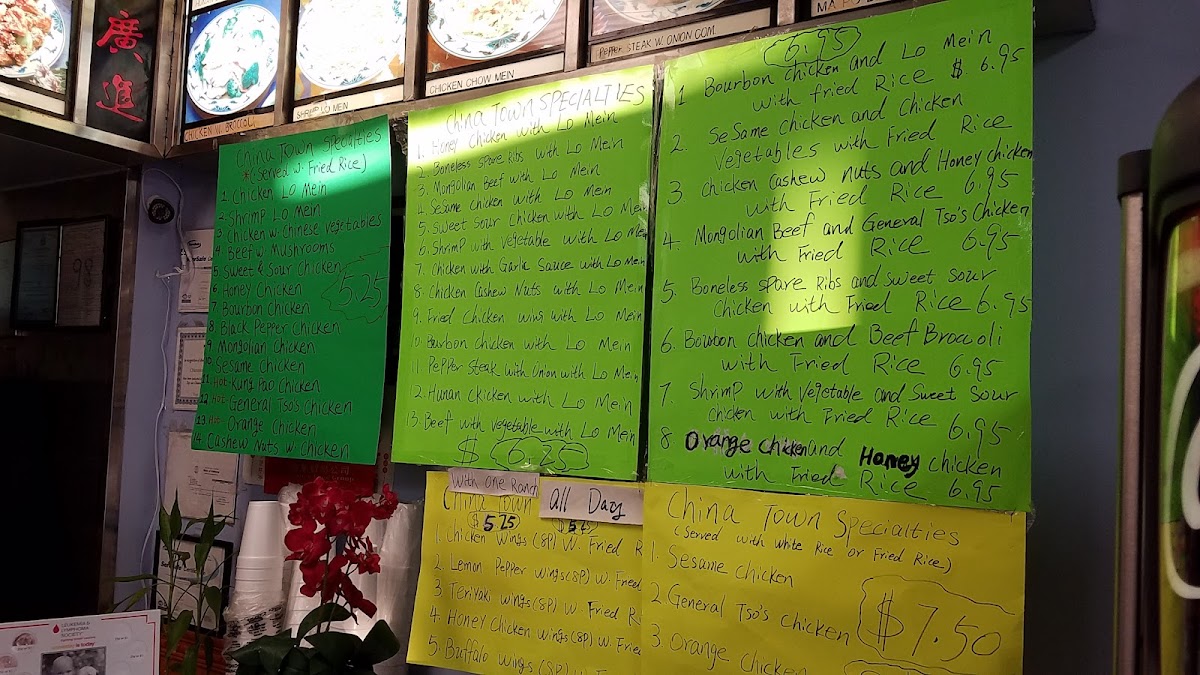 廣進
CHICKEN W. BROCCOLI
SHRIMP LO MEIN
CHICKEN CHOW MEIN
PEPPER STEAK W. ONION COM.
MA PO
China Town Specialties
*(Served w. Fried Rice)
1. Chicken Lo Mein
2. Shrimp Lo Mein
3. Chicken w. Chinese Vegetables
4. Beef w Mushrooms
5. Sweet & Sour Chicken
6. Honey Chicken
7. Bourbon Chicken
8. Black Pepper Chicken
9. Mongolian Chicken
10. Sesame Chicken
11. Hot. Kung Pao Chicken
12 Hot. General Tso's Chicken
13. Hot. Orange Chicken
14. Cashew Nuts w. Chicken
5.25
China Town SPECIALTIES
1. Honey Chicken with Lo Mein
2. Boneless spare Ribs with Lo Mein
3. Mongolian Beef with Lo Mein
4. Sesame chicken with Lo Mein
5. Sweet Sour chicken with Lo Mein
6. Shrimp with Vegetable with Lo Mein
7. Chicken with Garlic Sauce with Lo Mein
8. Chicken Cashew Nuts with Lo Mein
9. Fried Chicken wing with Lo Mein
10. Bourbon Chicken with Lo Mein
11 Pepper Steak with Onion with Lo Mein
12. Hunan Chicken with Lo Mein
13. Beef with Vegetable with Lo Mein
$ 6.25
6.95
1 Bourbon Chicken and Lo Mein
with fried Rice $ 6.95
2. SeSame chicken and Chicken
Vegetables with Fried Rice
3. Chicken Cashew nuts and Honey chicken
with Fried Rice 6.95
4. Mongolian Beef and General Tso's Chicken
with Fried Rice 6.95
5. Boneless spare Ribs and Sweet Sour
Chicken with Fried Rice 6.95
6. Bourbon chicken and Beef Broccoli
with Fried Rice 6.95
7. Shrimp with Vegetable and Sweet Sour
chicken with Fried Rice 6.95
8. Orange Chicken and Honey chicken
with Fried Rice 6.95
With One Ranch
All Day
China Town
$ 5.25
1. Chicken Wings (8P) W. Fried R
2. Lemon Pepper Wings (8P) W. Fried
3. Teriyaki Wings (8P) W. Fried R
4. Honey Chicken Wings (8P) W. Fried
5. Buffalo Wings (8P) W. Fried
China Town Specialties
(Served with White Rice or Fried Rice)
1. Sesame Chicken
2. General Tso's Chicken
3. Orange Chicken
$7.50
LEUKEMIA &
LYMPHOMA
SOCIETY